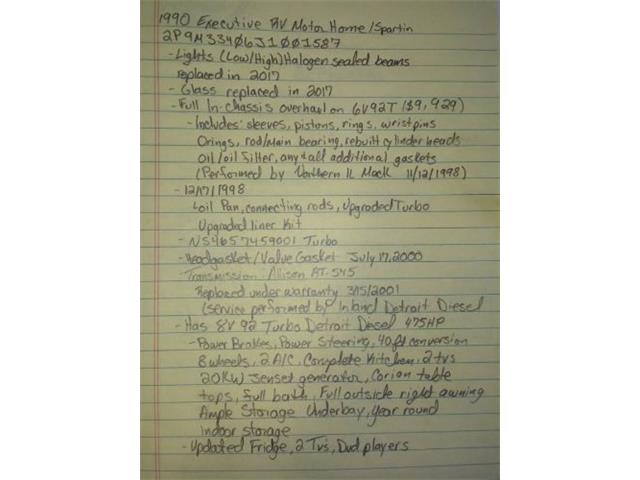 1990 Executive RV Motor Home/Spartin
2P9M33406J1001587
- Lights (Low/High) Halogen sealed beams
replaced in 2017
- Glass replaced in 2017
- Full In-Chassis overhaul on 6V92T ($9,929)
- Includes: sleeves, pistons, rings, wristpins
Orings, rod/main bearing, rebuilt cylinder heads
Oil/oil filter, any & all additional gaskets
(Performed by Northern IL Mack 11/12/1998)
- 12/17/1998
oil Pan, connecting rods, Upgraded Turbo
Upgraded liner Kit
- NS4657459001 Turbo
- Headgasket/Valve Gasket July 17, 2000
Transmission: Allison AT-545
Replaced under warranty 3/15/2001
(service performed by Inland Detroit Diesel
- Has 8V 92 Turbo Detroit Diesel 475HP
- Power Brakes, Power Steering, 40ft conversion
8 wheels, 2 A/C, Complete Kitchen, 2 tvs
20KW Jenset generator, Corian table
tops, full bath, Full outside right awning
Ample Storage Underbay, Year round
Indoor storage
- Updated Fridge, 2 Tvs, Dvd players